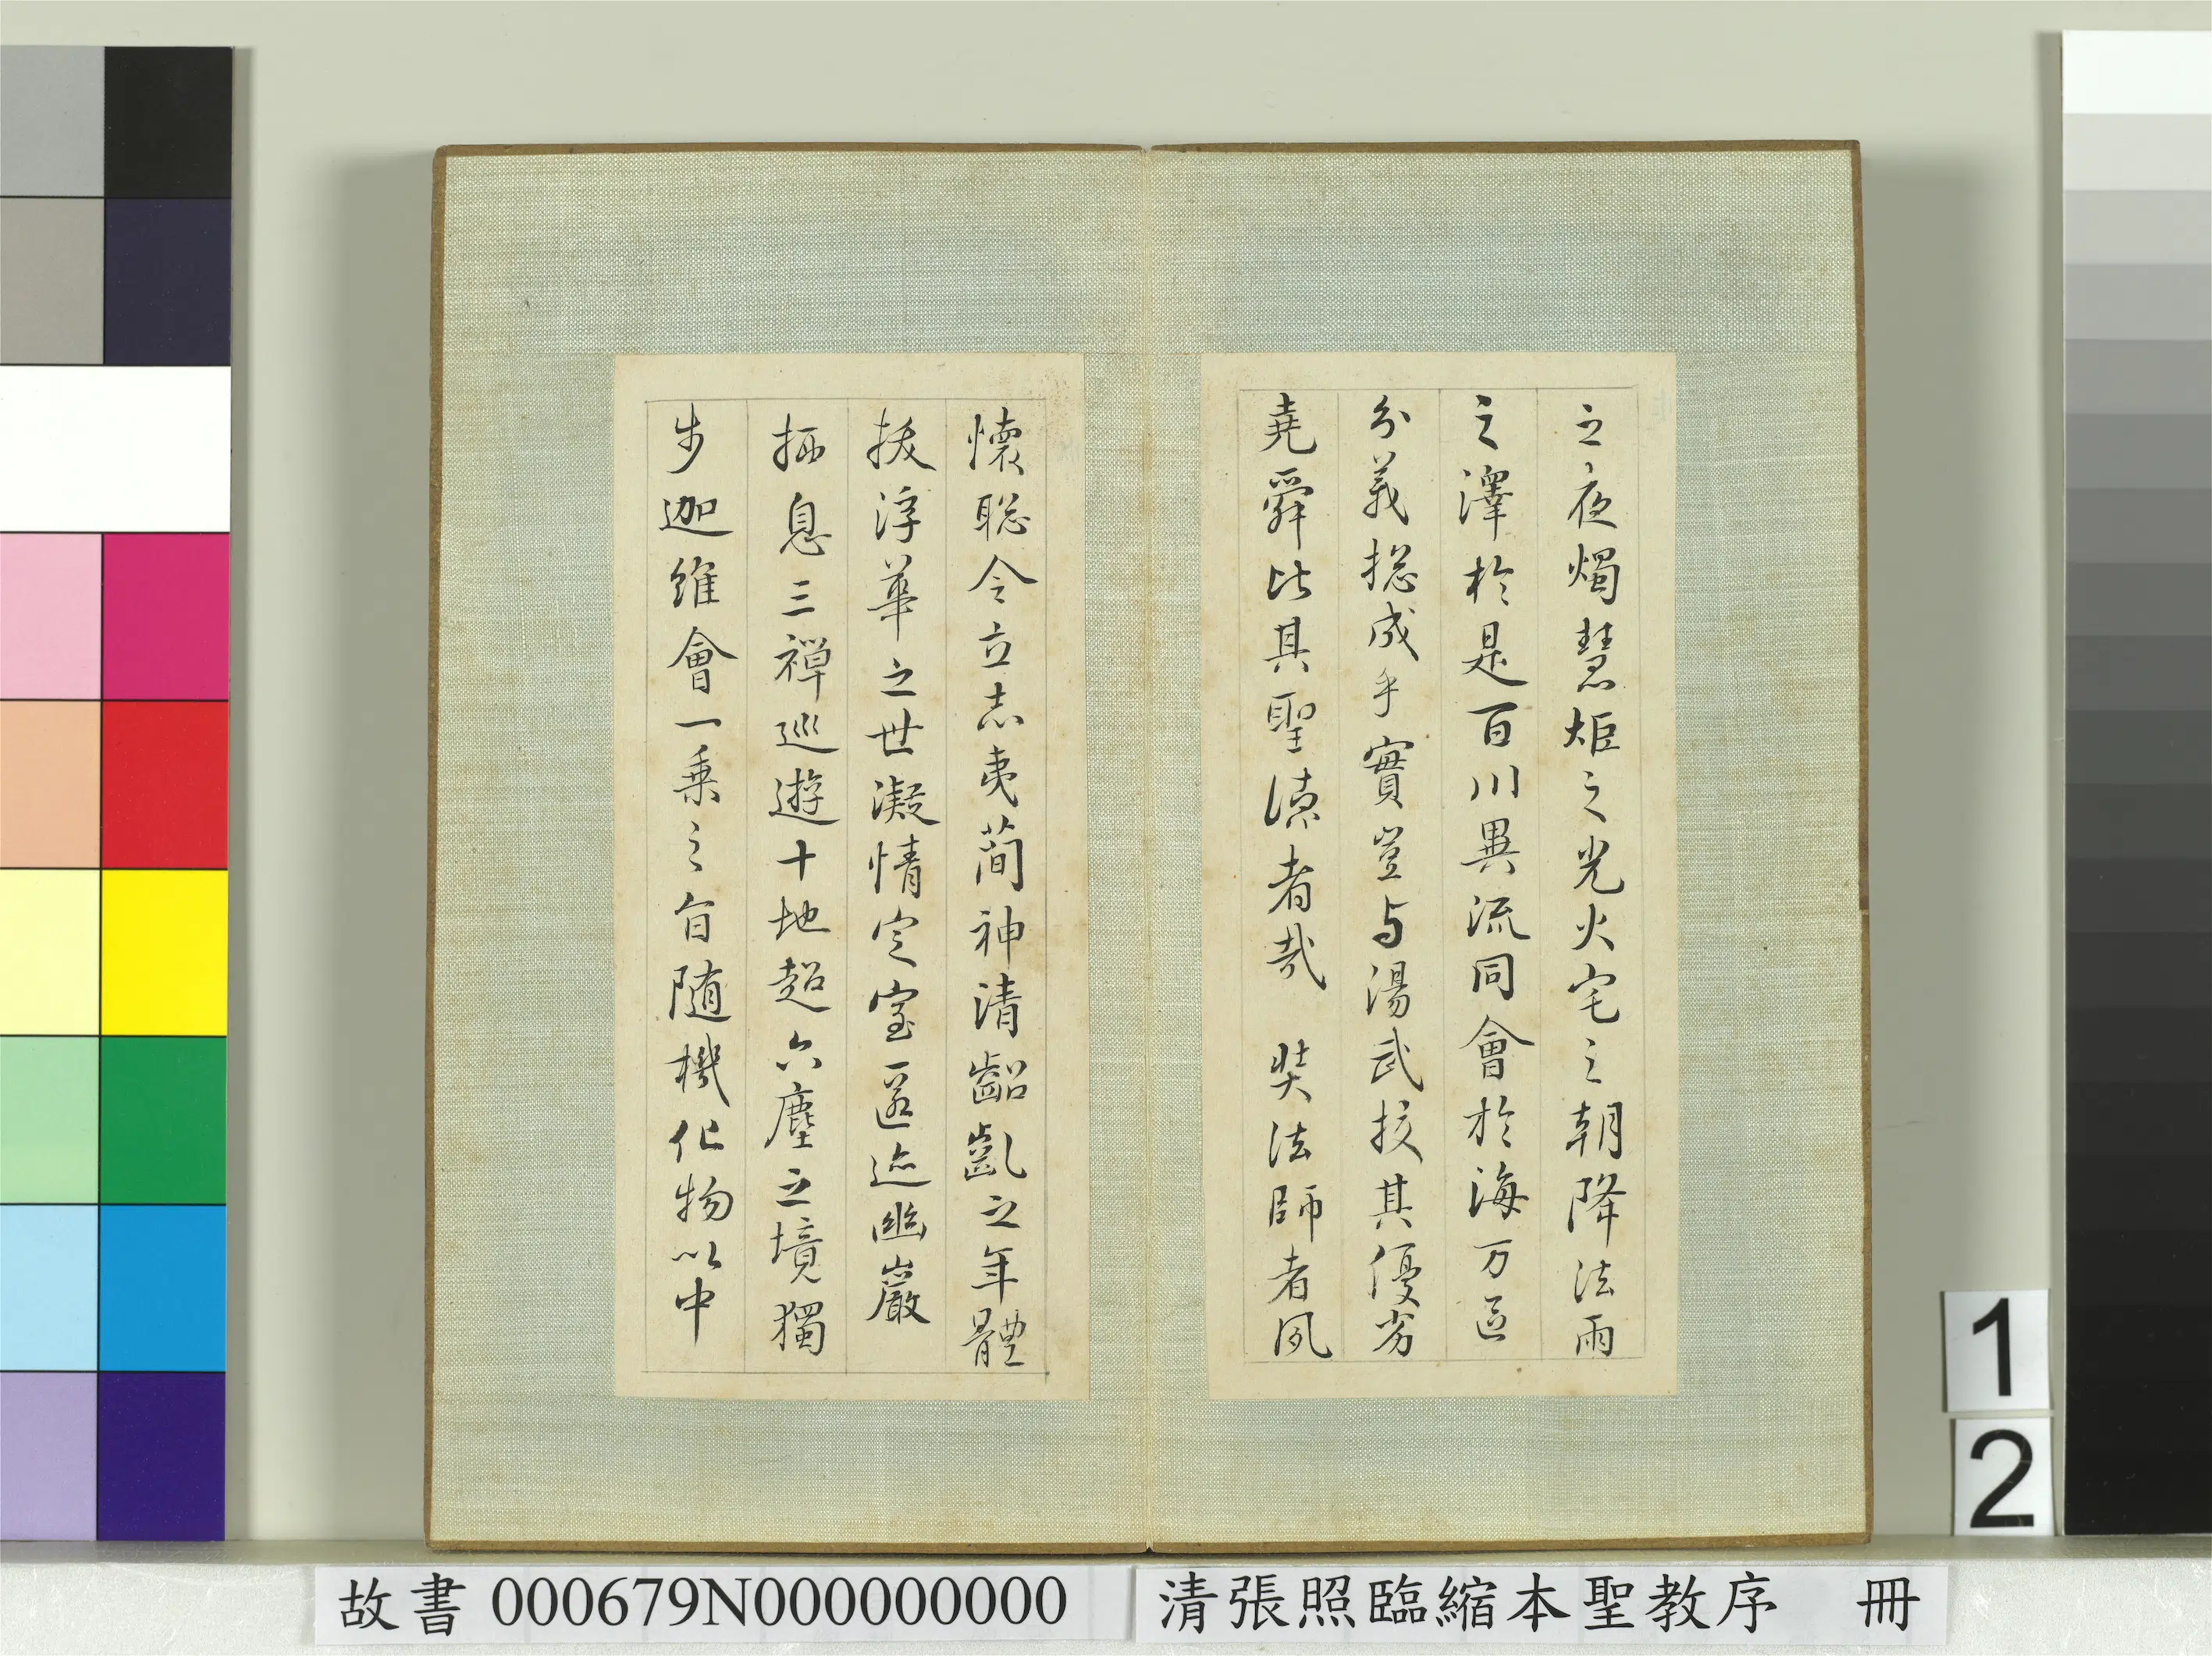 之夜燭慧炬之光火宅之朝降法雨
之澤於是百川異流同會於海万區
分義揔成乎實豈与湯武挍其優劣
堯舜比其聖德者哉 奘法師者夙
懷聡令立志夷蕳神清齠齓之年體
拔浮華之世凝情定室匿迹幽巖
栖息三禪巡遊十地超六塵之境獨
步迦維會一乗之旨随機化物以中
1
2
故書 000679N000000000
清張照臨縮本聖教序 冊